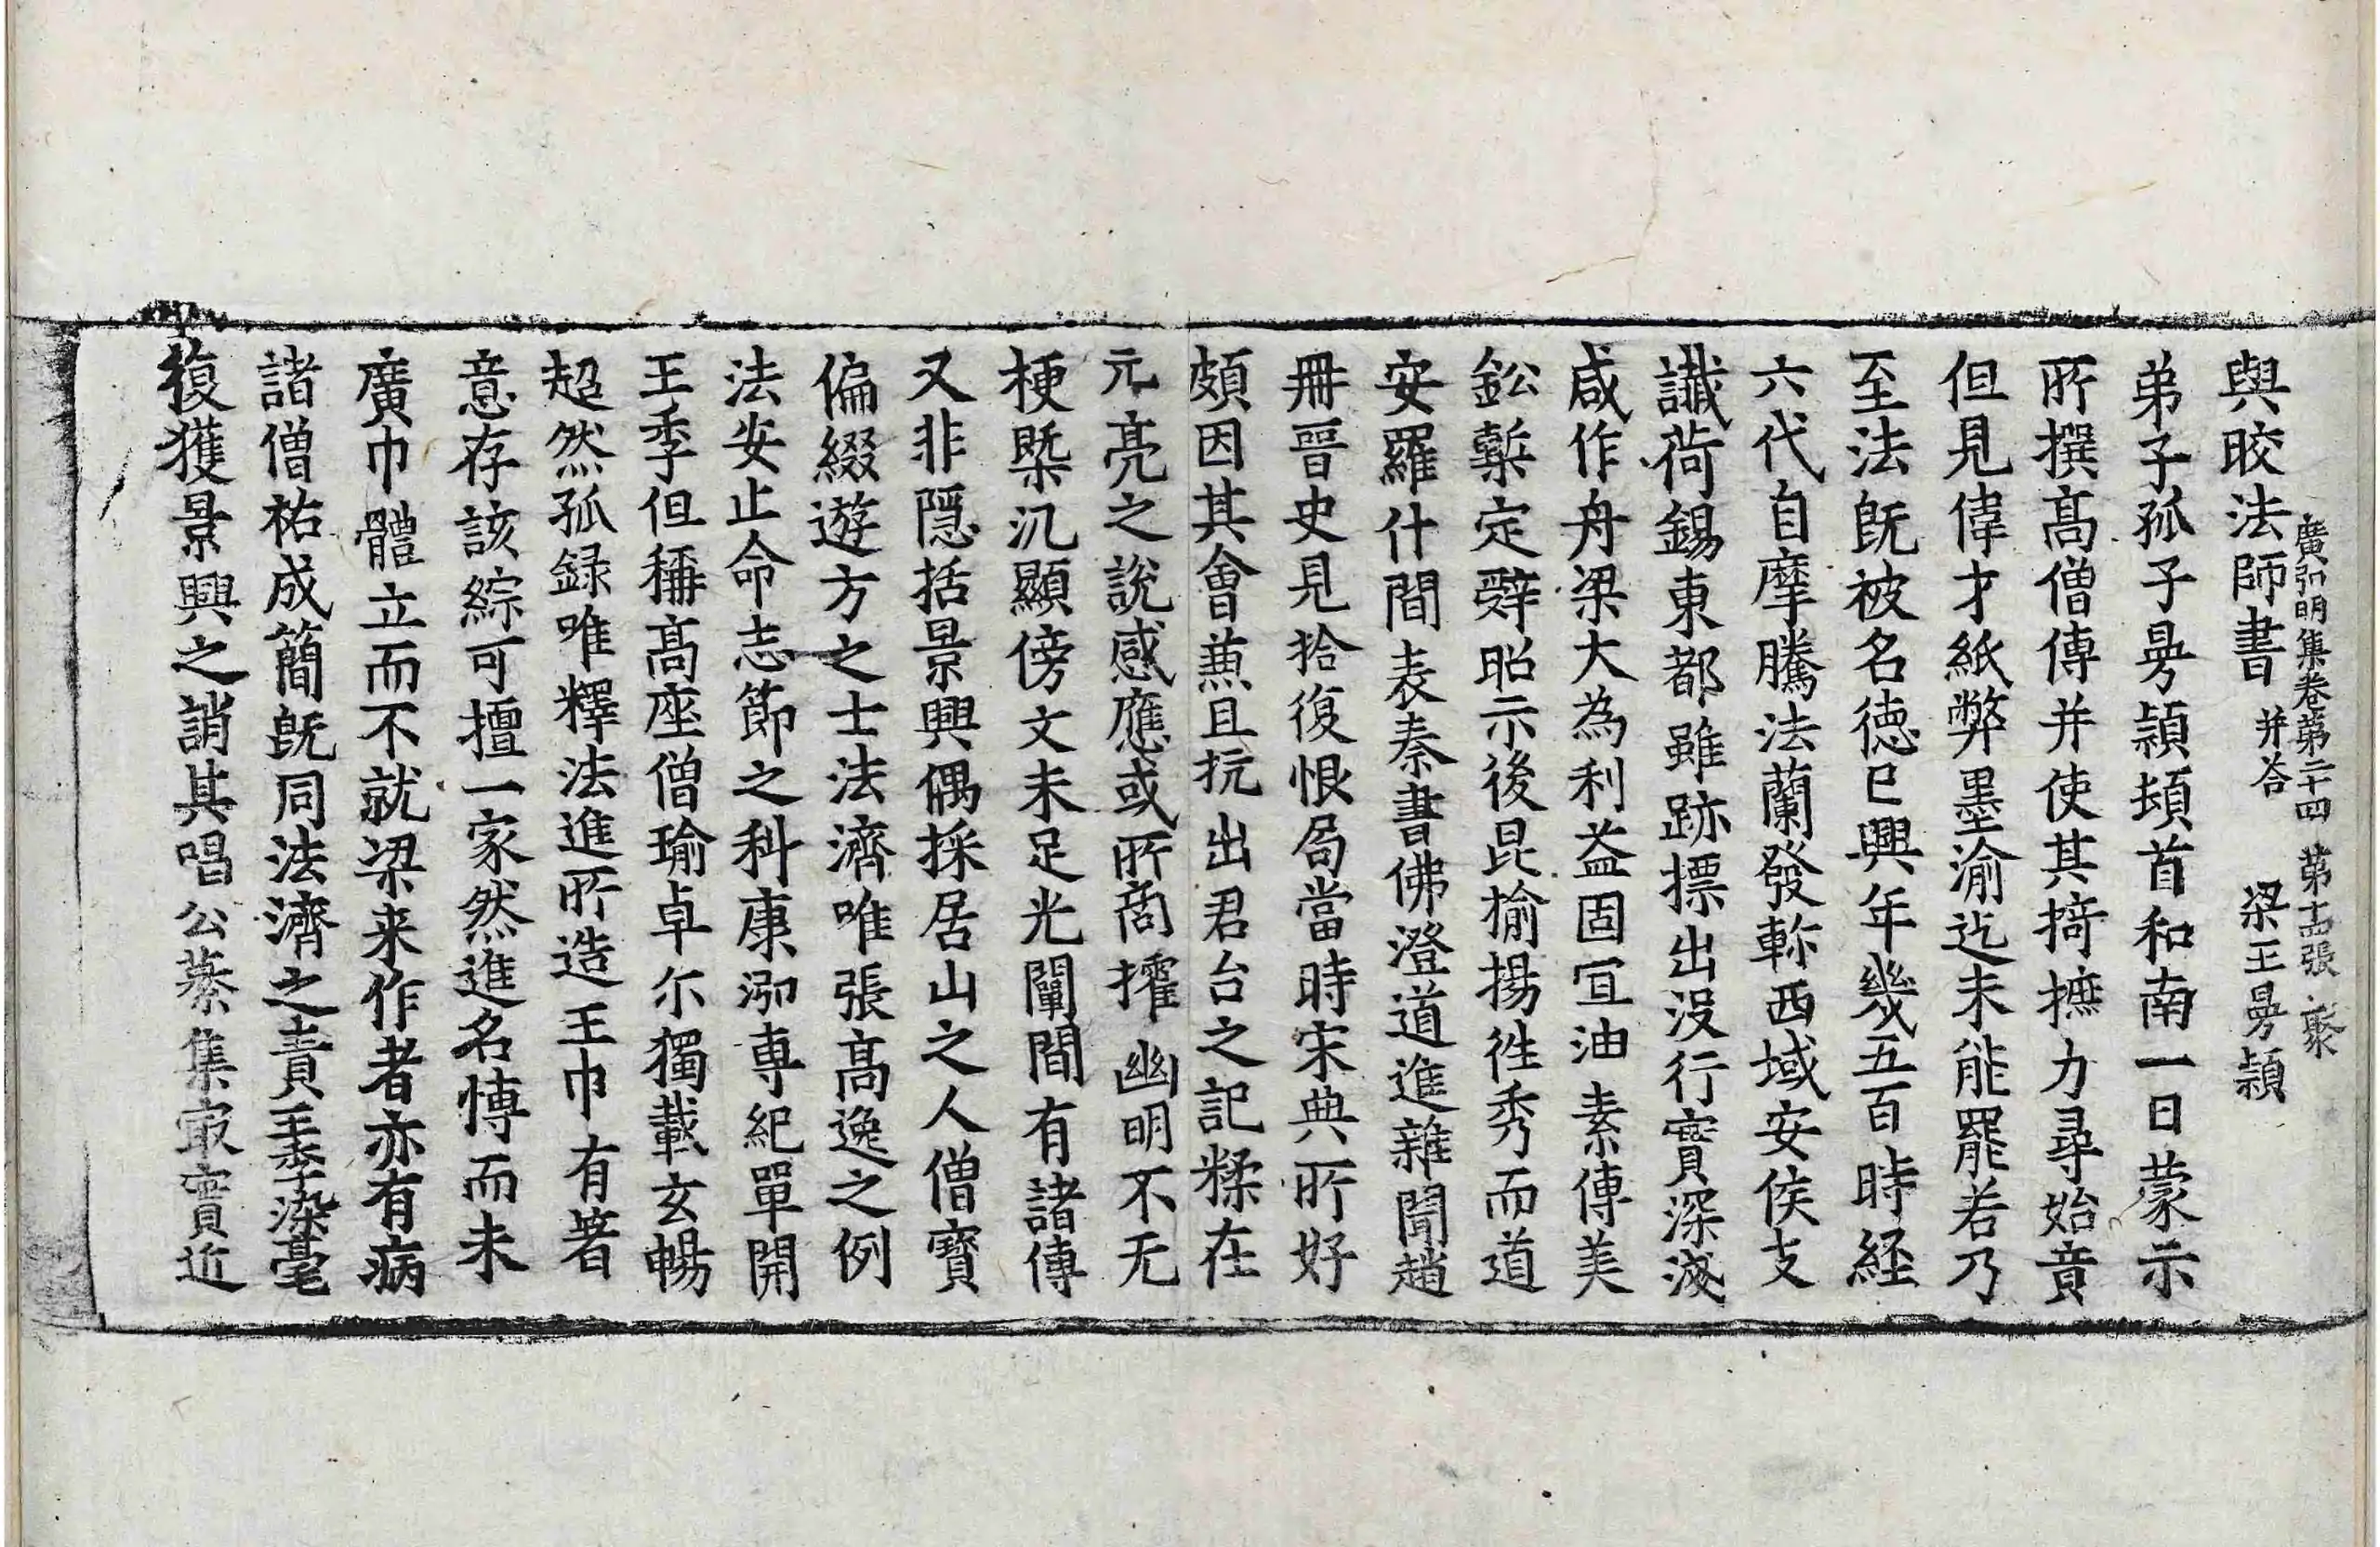 廣弘明集卷第二十四 第十五張 聚
與晈法師書 并荅 梁王曼穎
弟子孤子曼穎頓首和南一日蒙示
所撰髙僧傳并使其掎摭力尋始竟
但見偉才紙弊墨渝迄未能罷若乃
至法旣被名德已興年幾五百時經
六代自摩騰法蘭發軫西域安侯支
讖荷錫東都雖跡摽出沒行實深淺
咸作舟梁大為利益固宜油素傳美
鈆槧定辤昭示後昆揄揚徃秀而道
安羅什間表秦書佛澄道進雜聞趙
冊晉史見拾復恨局當時宋典所好
頗因其會兼且抗出君台之記糅在
元亮之說感應或所商搉幽明不无
梗槩汎顯傍文未足光闡間有諸傳
又非隱括景興偶採居山之人僧寶
偏綴遊方之士法濟唯張髙逸之例
法安止命志節之科康泓専紀單開
王季但稱髙座僧瑜卓尒獨載玄暢
超然孤録唯釋法進所造王巾有著
意存該綜可擅一家然進名慱而未
廣巾體立而不就梁来作者亦有病
諸僧祐成簡旣同法濟之責孝季染毫
復獲景興之誚其唱公纂集㝡實近